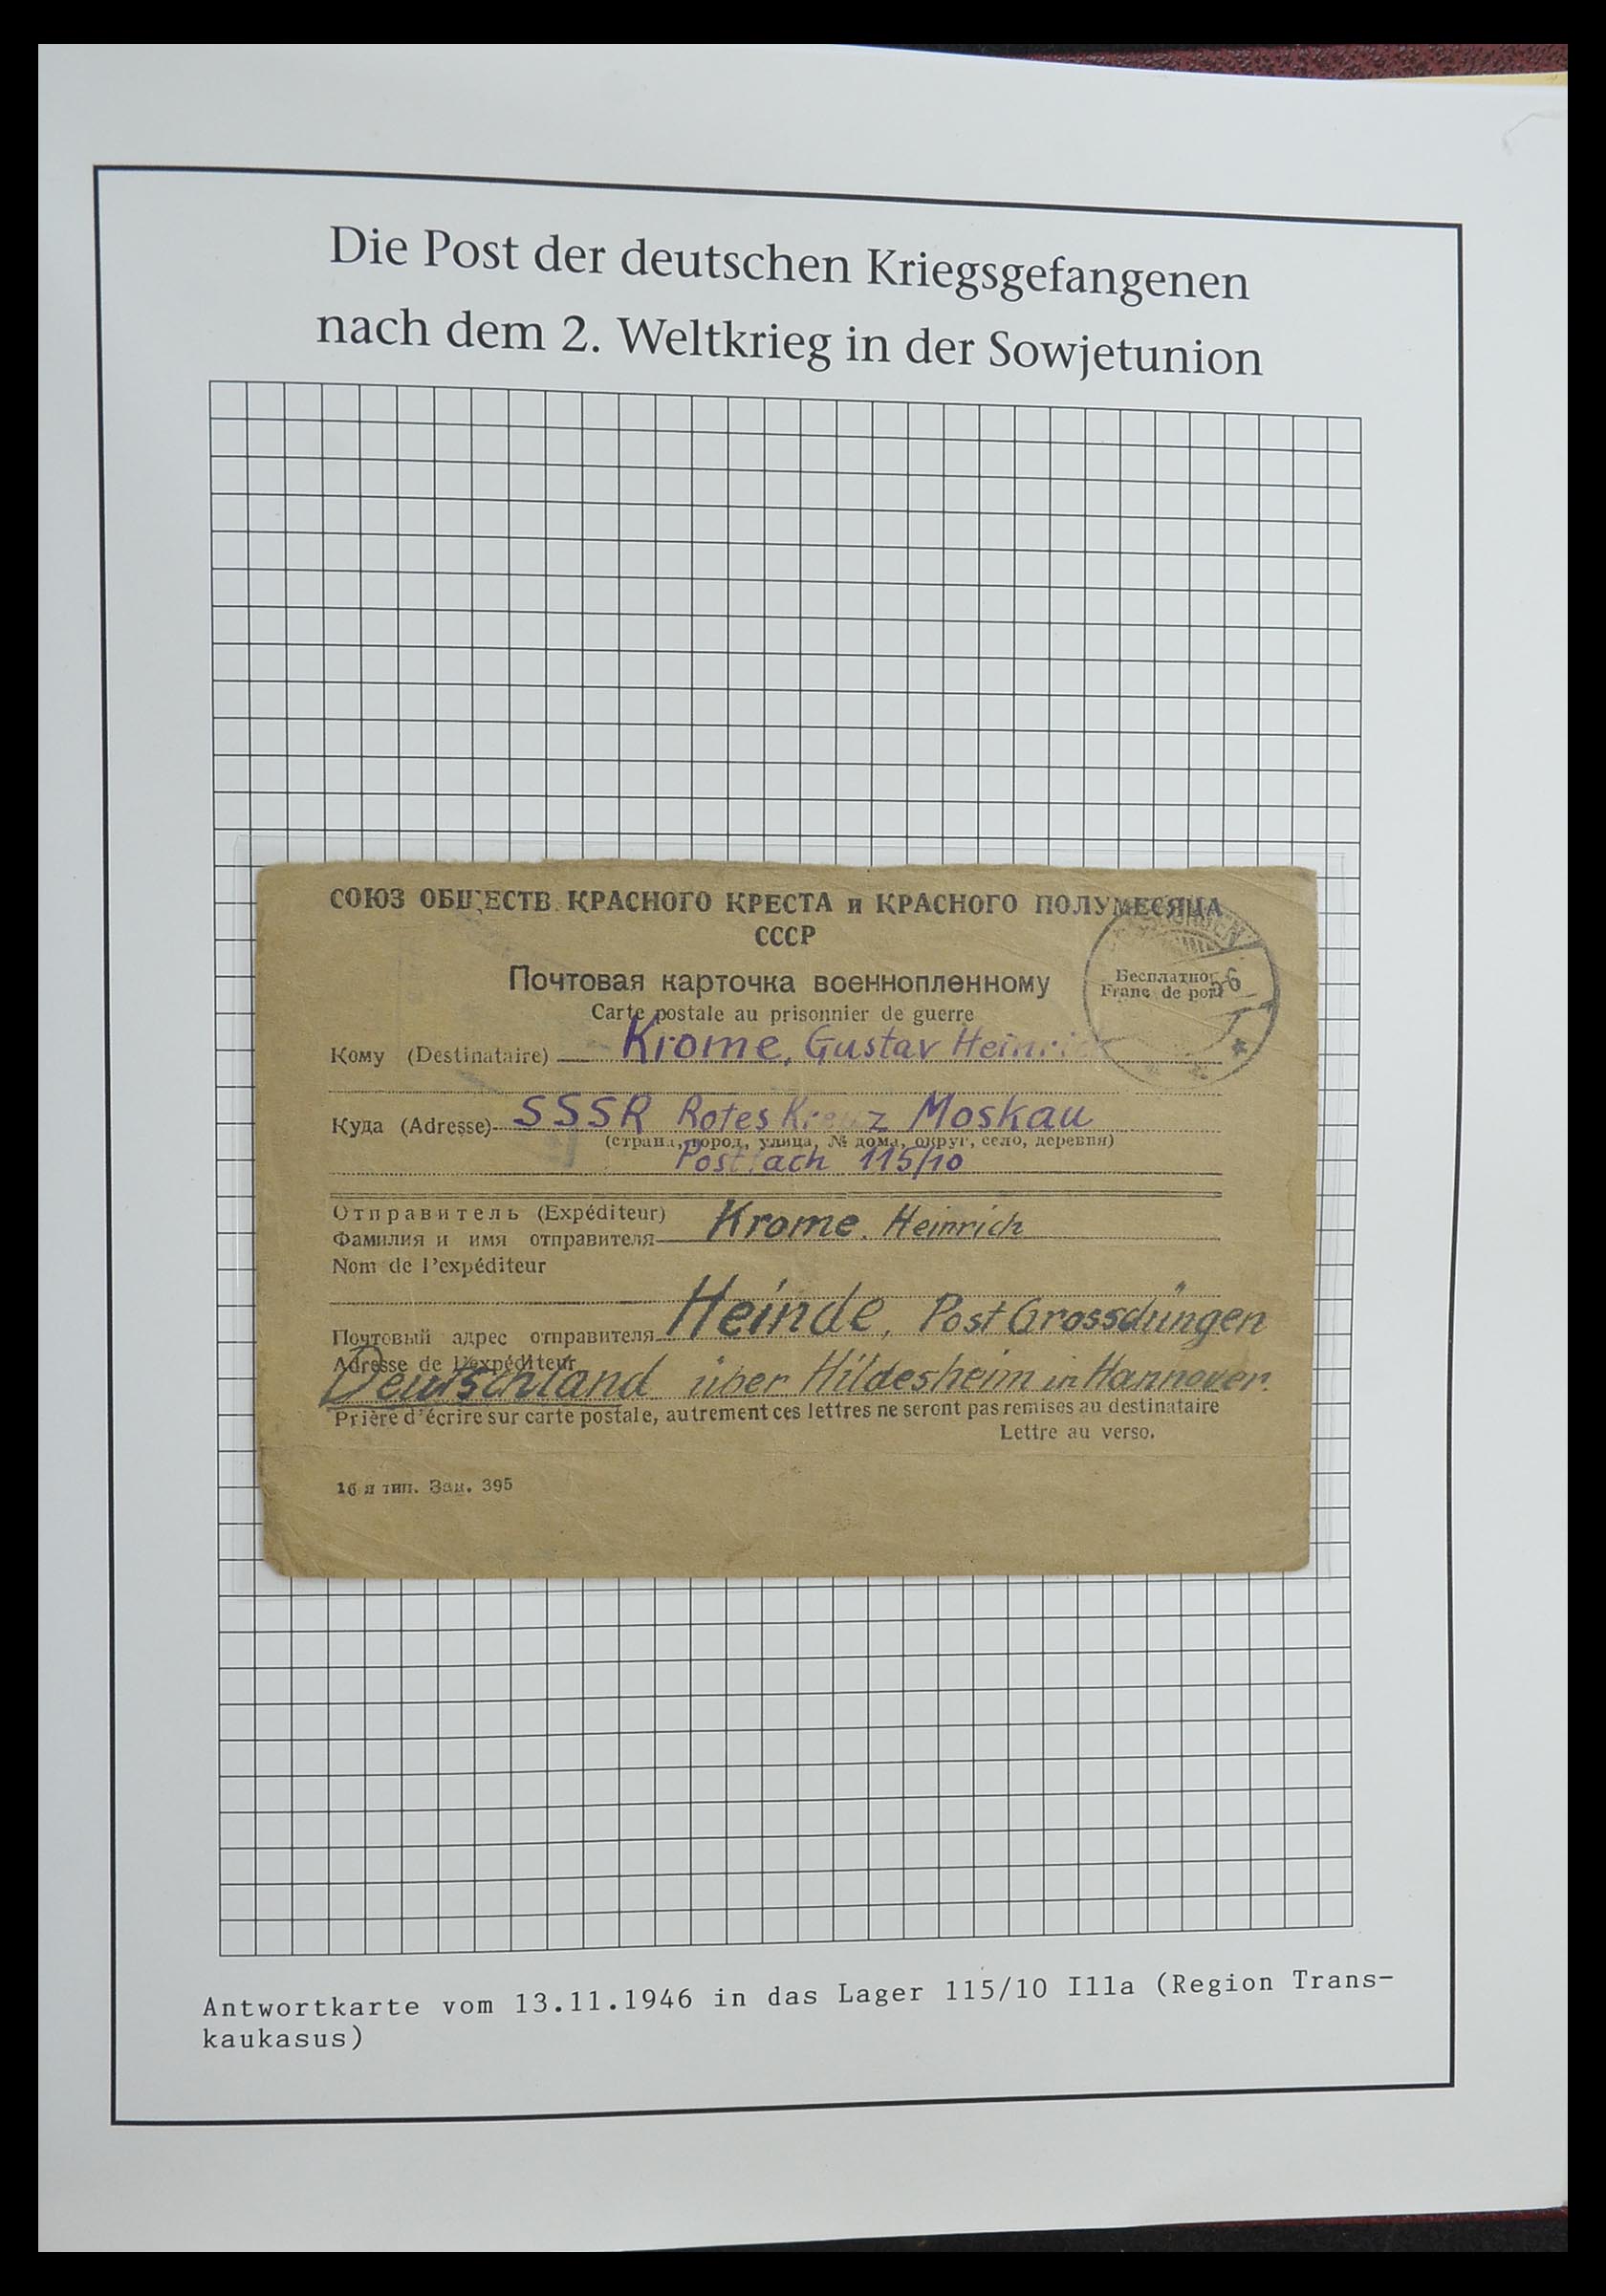 Die Post der deutschen Kriegsgefangenen
nach dem 2. Weltkrieg in der Sowjetunion
СОЮЗ ОБЩЕСТВ КРАСНОГО КРЕСТА и КРАСНОГО ПОЛУМЕСЯЦА
СССР
Почтовая карточка военнопленному
Carte postale au prisonnier de guerre
Бесплатно
Franc de port
Кому (Destinataire) Krome, Gustav Heinrich
Куда (Adresse) SSSR Rotes Kreuz Moskau
(страна, город, улица, № дома, округ, село, деревня)
Postfach 115/10
Отправитель (Expéditeur)
Фамилия и имя отправителя Krome, Heinrich
Nom de l'expéditeur
Почтовый адрес отправителя Heinde, Post Grossdüngen
Adresse de l'expéditeur
Deutschland über Hildesheim in Hannover.
Prière d'écrire sur carte postale, autrement ces lettres ne seront pas remises au destinataire
Lettre au verso.
16 я тип. Зак. 395
Antwortkarte vom 13.11.1946 in das Lager 115/10 I11a (Region Trans-
kaukasus)